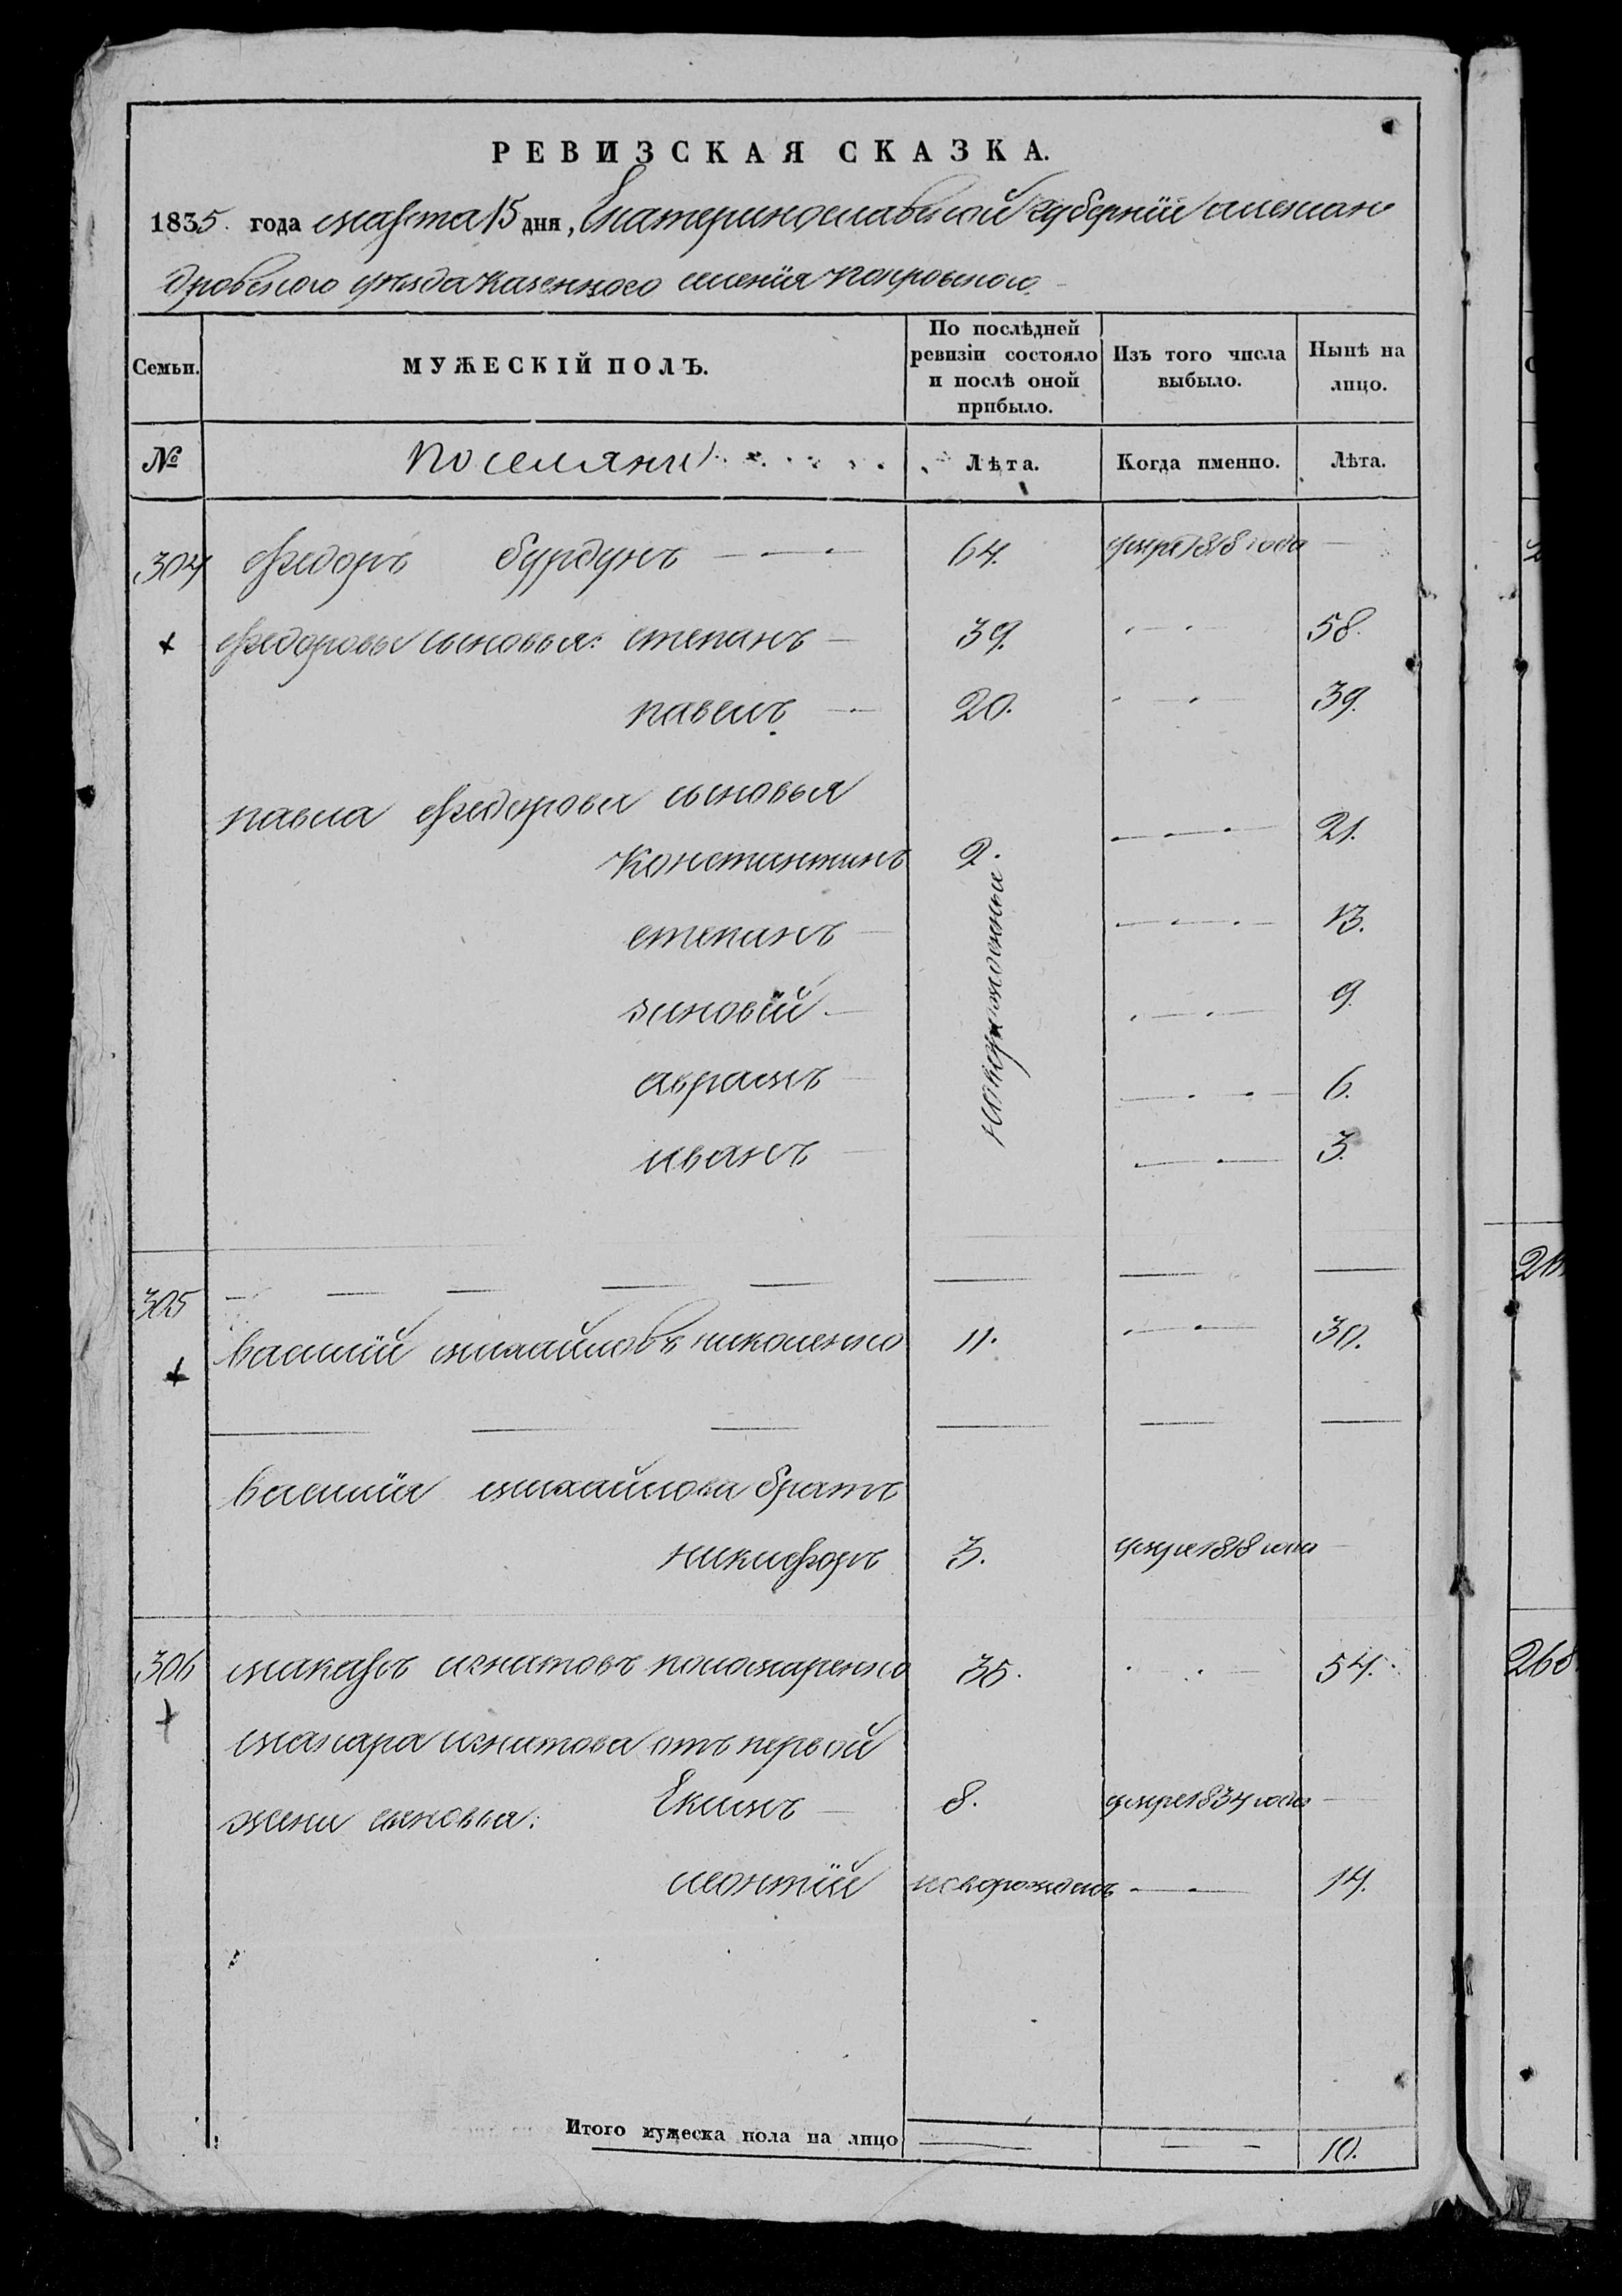 РЕВИЗСКАЯ СКАЗКА.
1835. года марта 15 дня, Екатеринославской губернии алексан
дровского уезда казенного селения Покровского
Семьи. МУЖЕСКІЙ ПОЛЪ. По послѣдней ревизіи состояло и послѣ оной прибыло. Изъ того числа выбыло. Нынѣ на лицо.
№ поселяни Лѣта. Когда именно. Лѣта.
304 Федоръ бурдунъ 64. умре 1818 года
Федоровы сыновья: степанъ 39. 58.
павелъ 20. 39.
павла Федорова сыновья
Константинъ 2. 21.
новорожденные
степанъ 13.
зиновій 9.
аврамъ 6.
иванъ 3.
305
василій михайловъ николенко 11. 30.
василія михайлова братъ
никифоръ 3. умре 1818 года
306 макаръ игнатовъ пономаренко 35. 54.
макара игнатова отъ первой
жени сыновья: Екимъ 8. умре 1834 года
леонтій новорожденъ 14.
Итого мужеска пола на лицо 10.
268